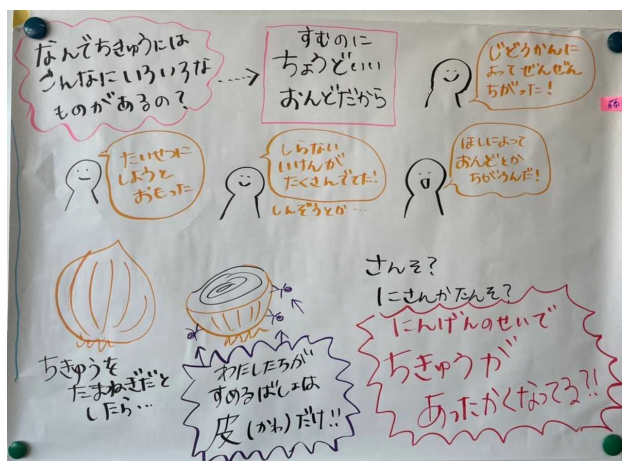 なんでちきゅうには
こんなにいろいろな
ものがあるの？
すむのに
ちょうどいい
おんどだから
じどうかんに
よってぜんぜん
ちがった！
たいせつに
しようと
おもった
しらない
いけんが
たくさんでてた！
しんぞうとか…
ほしによって
おんどとか
ちがうんだ！
ちきゅうを
たまねぎだと
したら…
わたしたちが
すめるばしょは
皮(かわ)だけ!!
さんそ？
にさんかたんそ？
にんげんのせいで
ちきゅうが
あったかくなってる?!